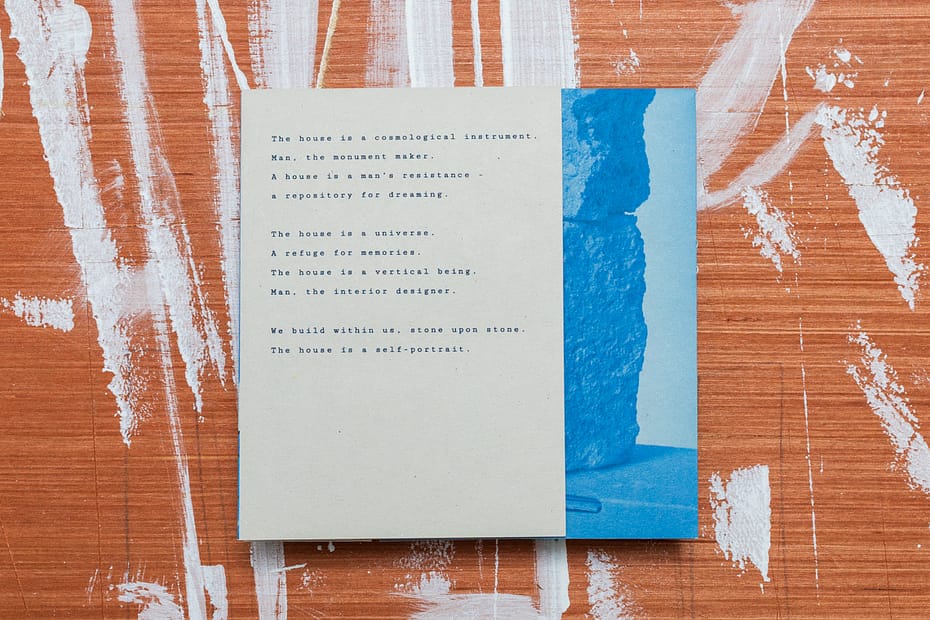 The house is a cosmological instrument.
Man, the monument maker.
A house is a man's resistance -
a repository for dreaming.
The house is a universe.
A refuge for memories.
The house is a vertical being.
Man, the interior designer.
We build within us, stone upon stone.
The house is a self-portrait.